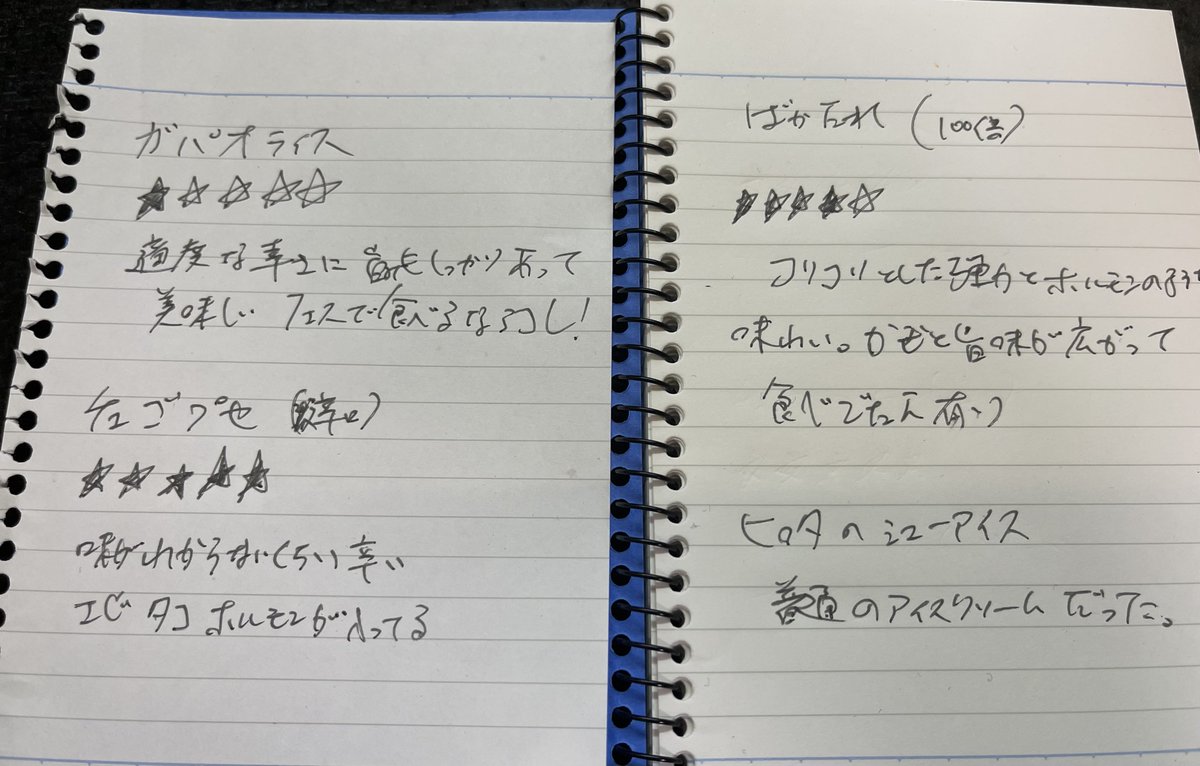 ガパオライス
★☆☆☆☆
適度な辛さに旨味しっかりあって
美味しい フェスで食べるならコレ!
チュゴプセ (激辛)
★★★★★
味がわからないくらい辛い
エビ タコ ホルモンが入ってる
ばかたれ (100倍)
★★★★☆
コリコリとした弾力とホルモンの
味わい。かむと旨味が広がって
食べごたえ有り
ヒロタのシューアイス
普通のアイスクリームだった。